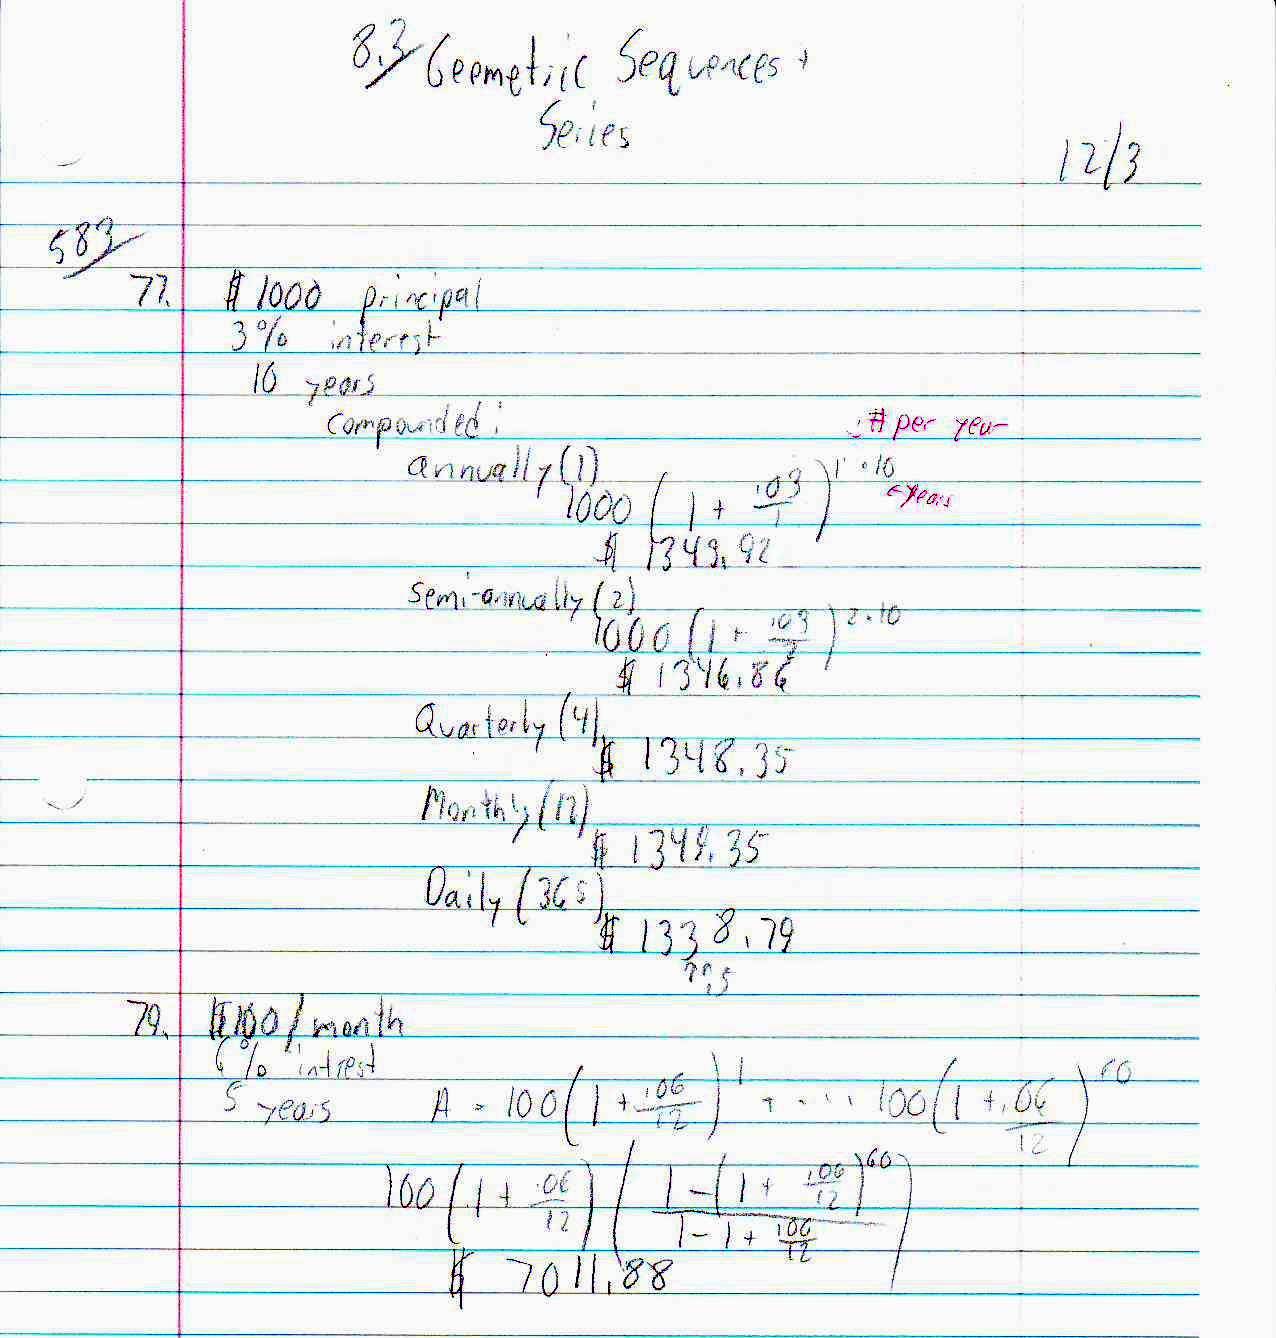 8.3 Geometric Sequences +
Series
12/3
583
77. $1000 principal
3% interest
10 years
compounded:
# per year
annually (1)
1000 (1 + .03/1)^1·10
← years
$ 1343.92
semi-annually (2)
1000 (1 + .03/2)^2·10
$ 1346.86
Quarterly (4)
$ 1348.35
Monthly (12)
$ 1349.35
Daily (365)
$ 1338.79
79. $100/month
6% intrest
5 years A = 100(1 + .06/12)^1 + .... 100(1 + .06/12)^60
100(1 + .06/12)(1-(1 + .06/12)^60/1-1 + .06/12)
$ 7011.88